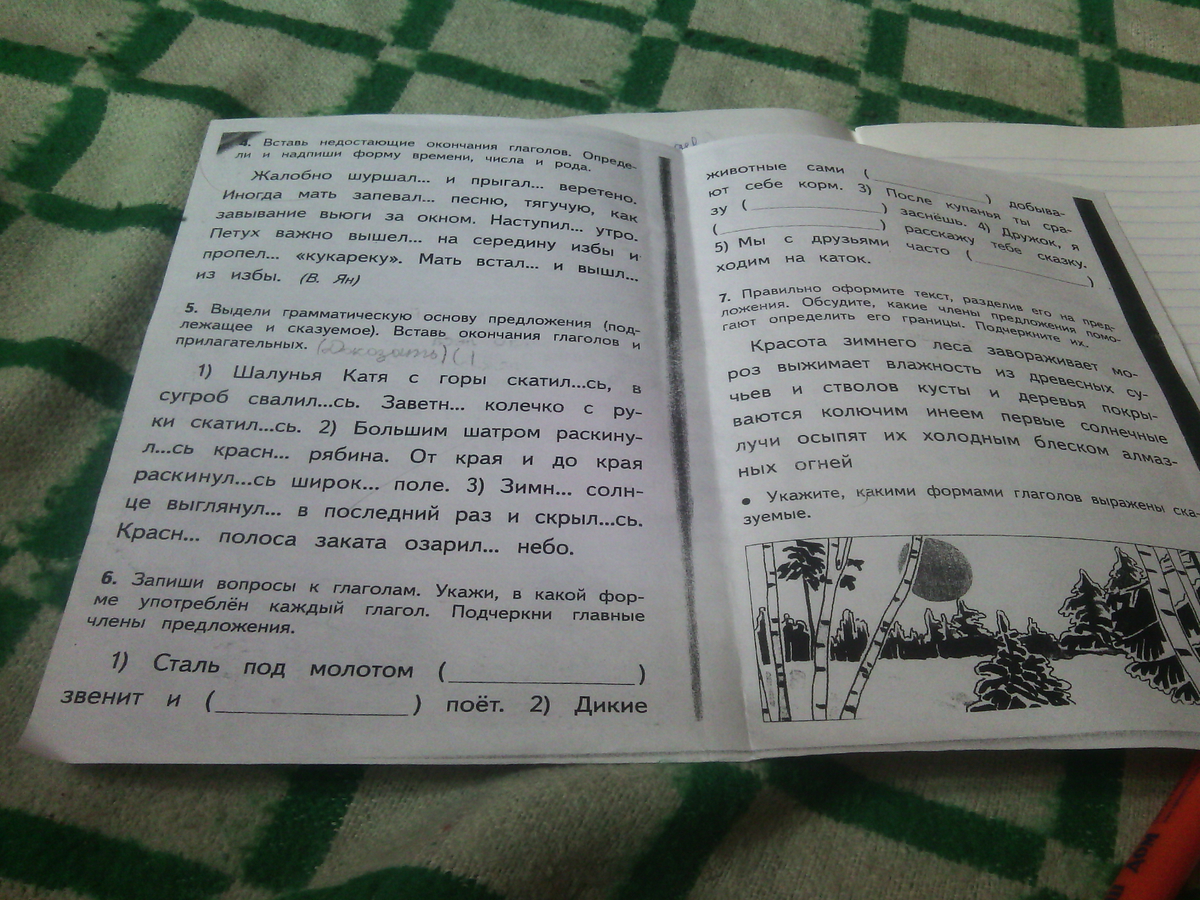 4. Вставь недостающие окончания глаголов. Опреде-
ли и надпиши форму времени, числа и рода.
Жалобно шуршал... и прыгал... веретено.
Иногда мать запевал... песню, тягучую, как
завывание вьюги за окном. Наступил... утро.
Петух важно вышел... на середину избы и
пропел... «кукареку». Мать встал... и вышл...
из избы. (В. Ян)
5. Выдели грамматическую основу предложения (под-
лежащее и сказуемое). Вставь окончания глаголов и
прилагательных. (Доказать)
1) Шалунья Катя с горы скатил...сь, в
сугроб свалил...сь. Заветн... колечко с ру-
ки скатил...сь. 2) Большим шатром раскину-
л...сь красн... рябина. От края и до края
раскинул...сь широк... поле. 3) Зимн... солн-
це выглянул... в последний раз и скрыл...сь.
Красн... полоса заката озарил... небо.
6. Запиши вопросы к глаголам. Укажи, в какой фор-
ме употреблён каждый глагол. Подчеркни главные
члены предложения.
1) Сталь под молотом (_______________)
звенит и (_______________) поёт. 2) Дикие
животные сами (_______________) добыва-
ют себе корм. 3) После купанья ты сра-
зу (_______________) заснёшь. 4) Дружок, я
(_______________) расскажу тебе сказку.
5) Мы с друзьями часто (_______________)
ходим на каток.
7. Правильно оформите текст, разделив его на пред-
ложения. Обсудите, какие члены предложения помо-
гают определить его границы. Подчеркните их.
Красота зимнего леса завораживает мо-
роз выжимает влажность из древесных су-
чьев и стволов кусты и деревья покры-
ваются колючим инеем первые солнечные
лучи осыпят их холодным блеском алмаз-
ных огней
• Укажите, какими формами глаголов выражены ска-
зуемые.